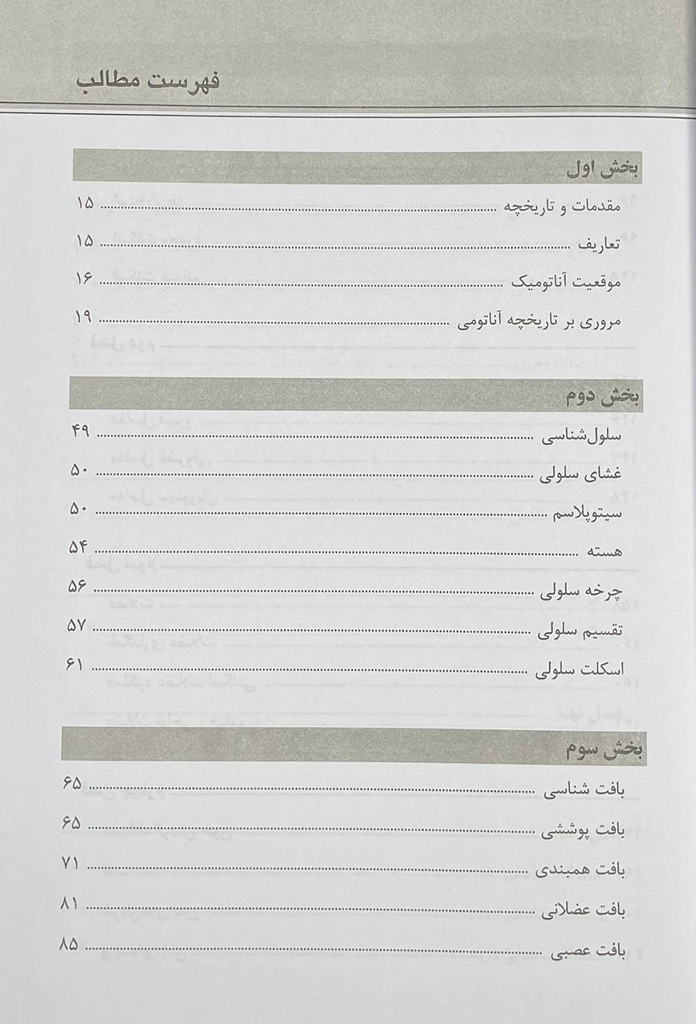 فهرست مطالب
بخش اول
مقدمات و تاریخچه ........ ۱۵
تعاریف ........ ۱۵
موقعیت آناتومیک ........ ۱۶
مروری بر تاریخچه آناتومی ........ ۱۹
بخش دوم
سلول‌شناسی ........ ۴۹
غشای سلولی ........ ۵۰
سیتوپلاسم ........ ۵۰
هسته ........ ۵۴
چرخه سلولی ........ ۵۶
تقسیم سلولی ........ ۵۷
اسکلت سلولی ........ ۶۱
بخش سوم
بافت شناسی ........ ۶۵
بافت پوششی ........ ۶۵
بافت همبندی ........ ۷۱
بافت عضلانی ........ ۸۱
بافت عصبی ........ ۸۵